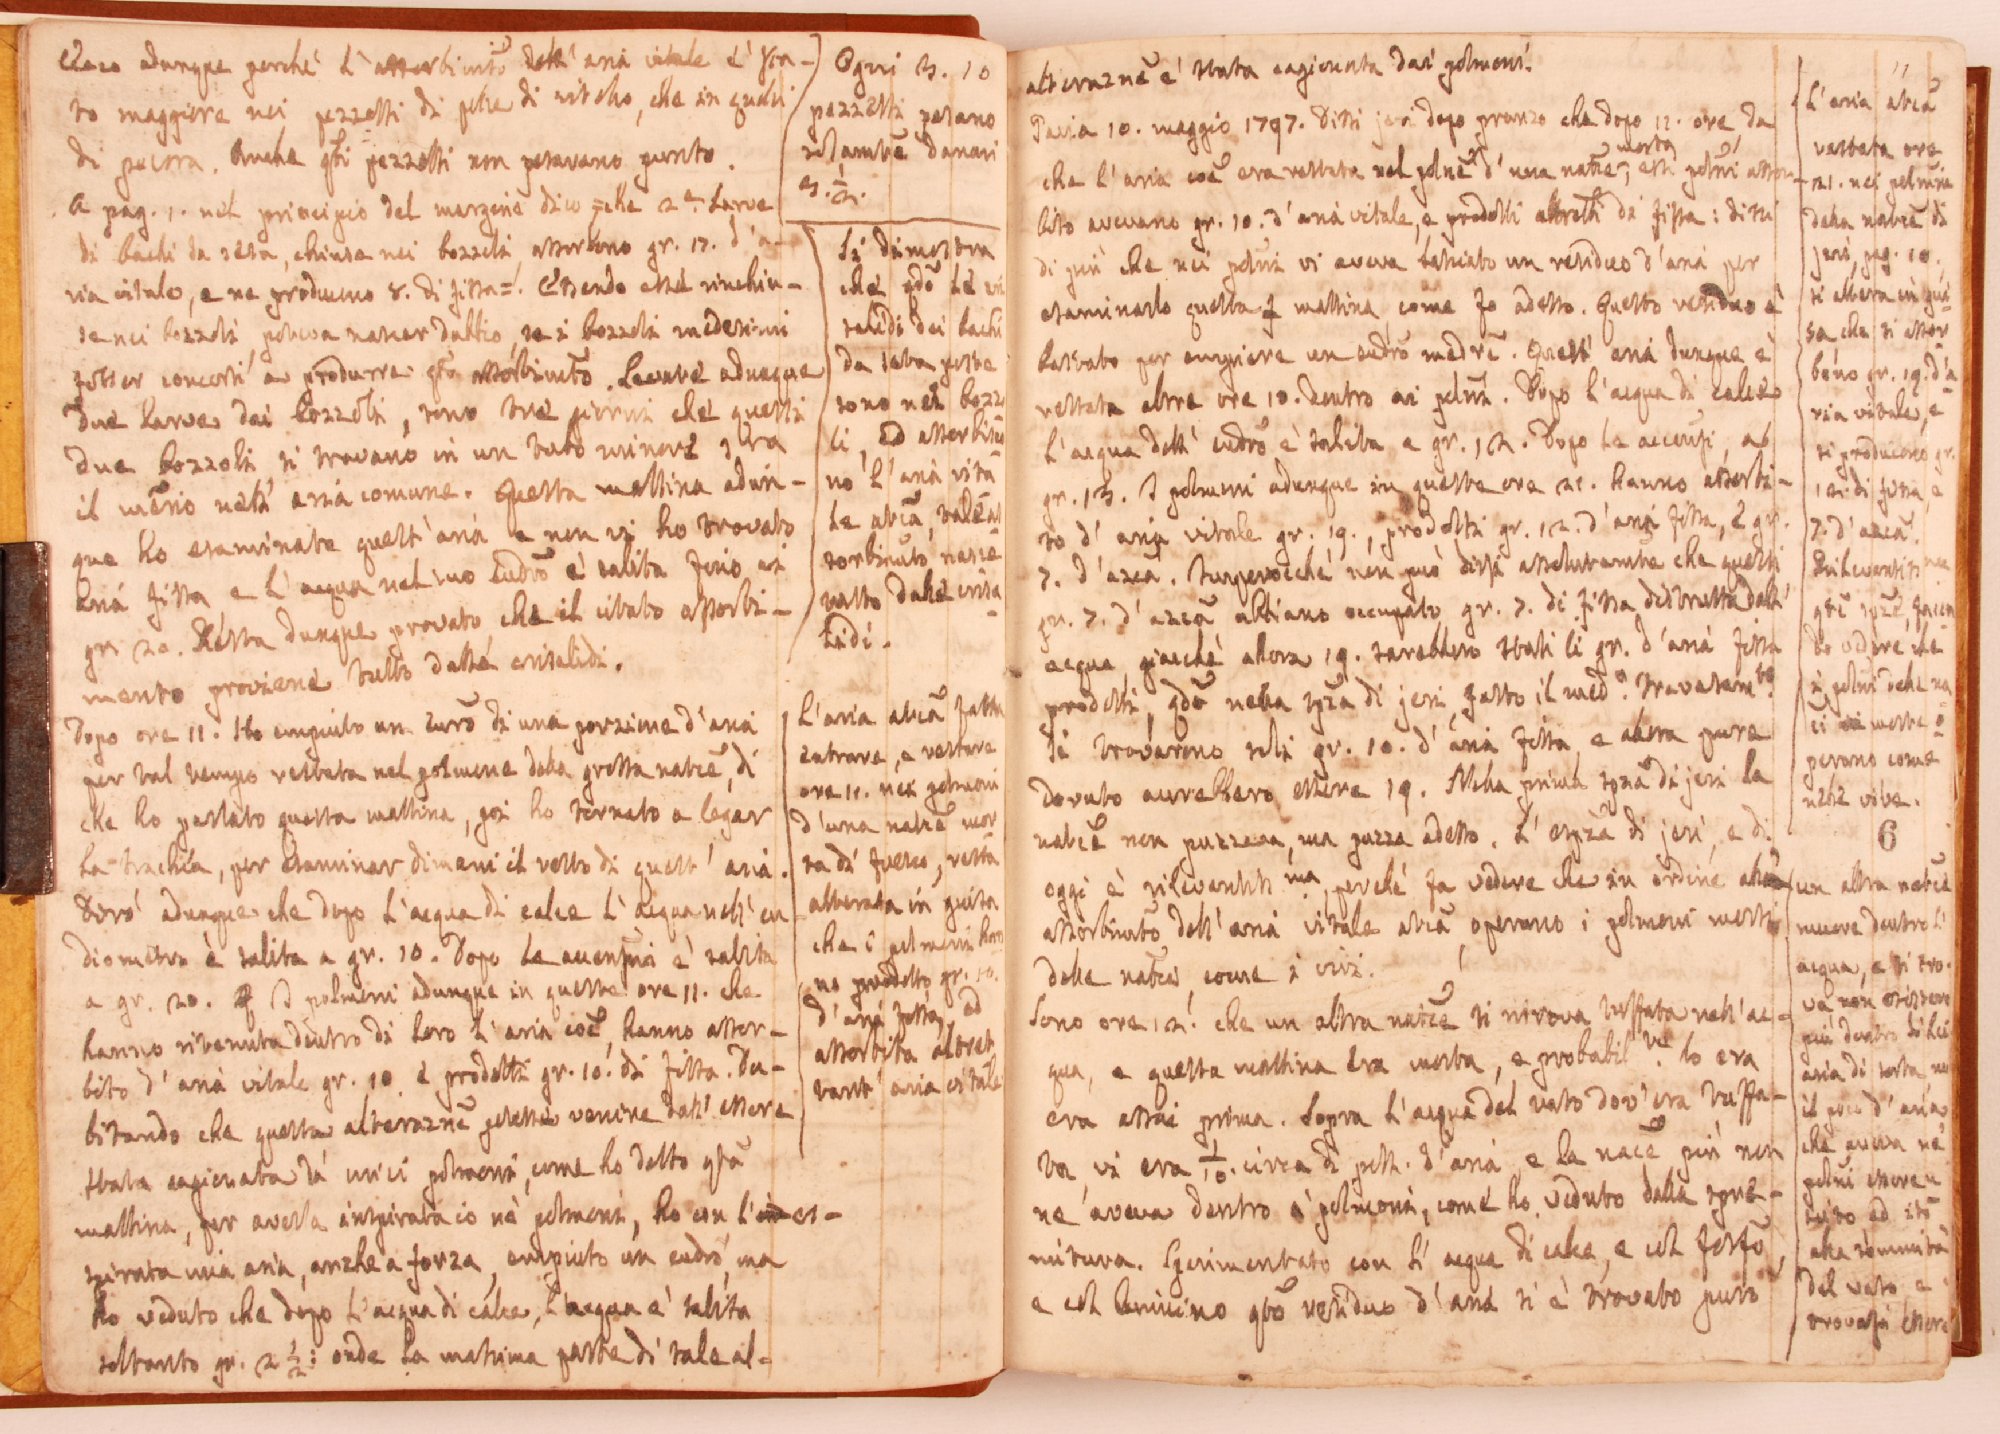 Ecco adunque perché l'assorbimto dell'aria vitale è sta-
to maggiore nei pezzetti di pelle di vitello, che in quelli
di pecora. Anche qsti pezzetti non pesavano punto.
A pag. 1. nel principio del margine dico = che 2e. larve
di bachi da seta, chiuse nei bozzoli assorbono gr. 17. d'a-
ria vitale, e ne producono 8. di fissa =. Essendo esse rinchiu-
se nei bozzoli poteva nascer dubbio, se i bozzoli medesimi
fosser concorsi a produrre qsto assorbimto. Levate adunque
due larve dai bozzoli, sono tre giorni che questi
due bozzoli si trovano in un tubo minore
il meno nell'aria comune. Questa mattina adun-
que ho esaminate quest'aria e non vi ho trovato
aria fissa, e l'acqua nel suo eudro è salita fino ai
gr. 20. Resta dunque provato che il citato assorbi-
mento proviene tutto dalle crisalidi.
Dopo ore 11. Ho empiuto un eudro di una porzione d'aria
per tal tempo restata nel polmone della grossa natrce, di
che ho parlato questa mattina, poi ho tornato a legar
la trachea, per esaminar dimani il resto di quest'aria.
Dirò adunque che dopo l'acqua di calce l'acqua nell'eu
diometro è salita a gr. 10. Dopo le accensni è salita
a gr. 20. I polmoni adunque in queste ore 11. che
hanno ritenuta dentro di loro l'aria coe, hanno assor-
bito d'aria vitale gr. 10. e prodotti gr. 10. di fissa. Du-
bitando che questa alterazne potesse venire dall'essere
stata cagionata da' miei polmoni, come ho detto qsta
mattina, per averla inspirata io ne' polmoni, ho con l'es-
spirata mia aria, anche a forza, empiuto un eudro, ma
ho veduto che dopo l'acqua di calce, l'acqua è salita
soltanto gr. 2 1/2: onde la massima parte di tale al-
Ogni n. 10
pezzetti pesano
solamte danari
n. 1/2.
Si dimostra
che qdo le cri
salidi dei bachi
da seta poste
sono nei bozzo
li, ed assorbisco
no l'aria vita
le atca, tale as
sorbimto nasce
tutto dalle crisa-
lidi.
L'aria atca fatta
entrare, e restare
ore 11. nei polmoni
d'una natrce mor
ta di fresco, resta
alterata in guisa
che i polmoni han
no prodotto gr. 10.
d'aria fissa, ed
assorbita altret
tant'aria vitale
alterazne è stata cagionata dai polmoni.
Pavia 10. maggio 1797. Dissi jeri dopo pranzo che dopo 11. ore, da
che l'aria coe era restata nel polne d'una natrce morta, essi polmi assor-
bito avevano gr. 10. d'aria vitale, e prodotti altretti di fissa: dissi
di più che nei polmi vi aveva lasciato un residuo d'aria per
esaminarlo questa mattina, come fo adesso. Questo residuo è
bastato per empiere un eudro madre. Quest'aria dunque è
restata altre ore 10. dentro ai polmi. Dopo l'acqua di calce
l'acqua dell'eudro è salita a gr. 12. Dopo le accensi, a
gr. 13. I polmoni adunque in queste ore 21. hanno assorbi-
to d'aria vitale gr. 19., prodotti gr. 12. d'aria fissa, e gr.
7. d'azca. Imperocché non può dirsi assolutamte che questi
gr. 7. d'azca abbiano occupato gr. 7. di fissa distrutta dall'
acqua, giacché allora 19. sarebbero stati li gr. d'aria fissa
prodotti, qdo nella spza di jeri, fatto il medo. travasamto.
si trovarono soli gr. 10. d'aria fissa, e allora pure
dovuto avrebbero essere 19. Nella prima spza di jeri la
natrce non puzzava, ma puzza adesso. L'espza di jeri, e di
oggi è rilevantissma, perché fa vedere che in ordine allo
assorbimto dell'aria vitale atca, operano i polmoni morti
delle natrci, come i vivi.
Sono ore 12. che un altra natrce si ritrova tuffata nell'ac-
qua, e questa mattina era morta, e probabilte lo era
era assai prima. Sopra l'acqua del vaso dov'era tuffa-
ta, vi era 1/10. circa di poll. d'aria, e la natce più non
ne aveva dentro a' polmoni, come ho veduto dalla spre-
mitura. Sperimentato con l'acqua di calce, e col fosfo,
e col lumicino qsto residuo d'aria si è trovato puro
11
L'aria atca
restata ore
21. nei polmoni
della natrce di
jeri, pag. 10.
si altera in gui
sa che si assor-
beno gr. 19. d'a
ria vitale, e
si producono gr.
12. di fissa, e
7. d'azca.
Rilevantissma
qste spze, facen
do vedere che
i polmi delle na
ci morte o-
perano come
nelle vive.
6
un altra natrce
muore dentro l'
acqua, e si tro-
va non esistere
più dentro di lei
aria di sorta, ma
il poco d'aria
che aveva ne'
polmi essere u
scito ed ito
alla sommità
del vaso, e
trovasi essere